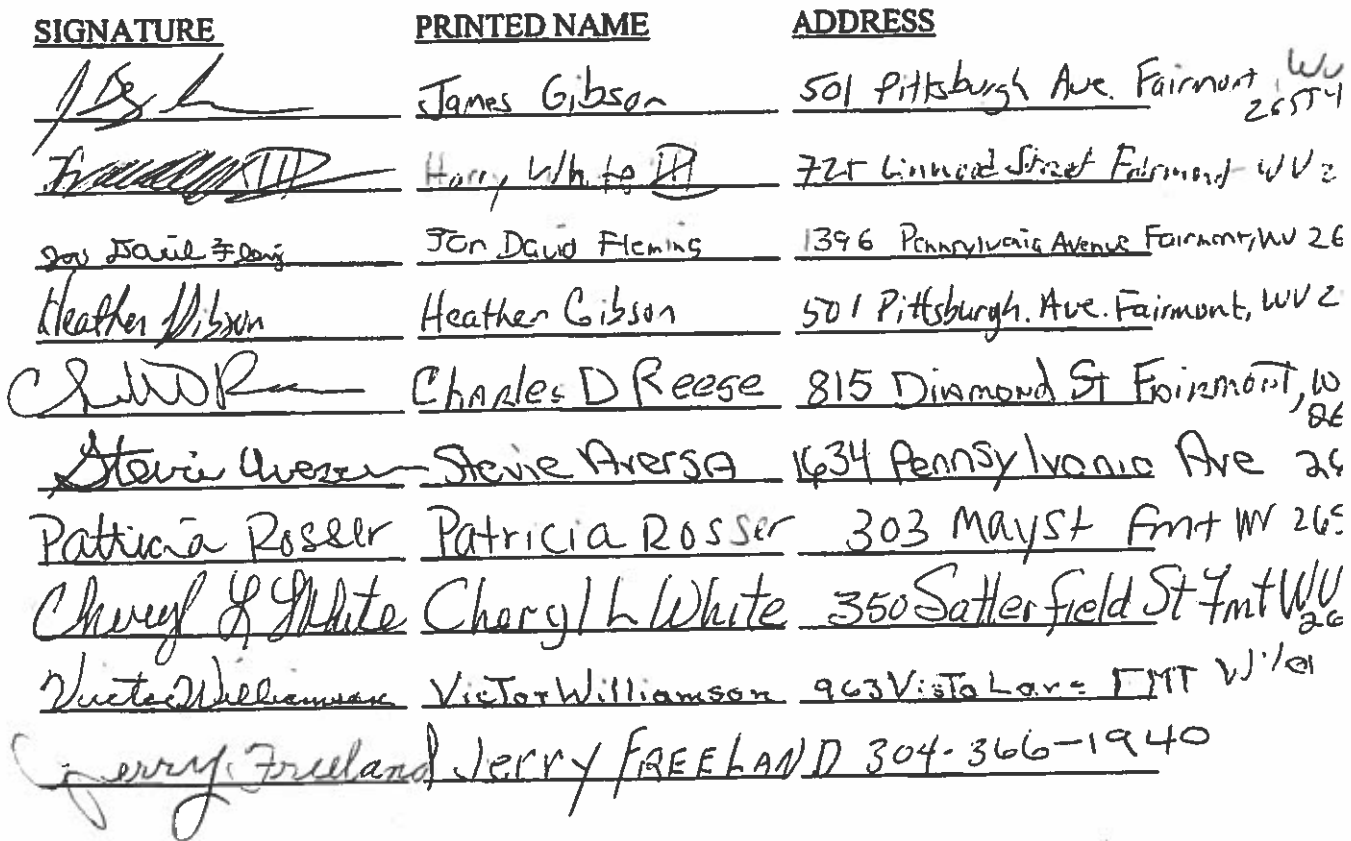 SIGNATURE PRINTED NAME ADDRESS
James Gibson 501 Pittsburgh Ave. Fairmont, WV 26554
III Harry White III 725 Street Fairmont WV 2
Jon David Fleming Jon David Fleming 1396 Pennsylvania Avenue Fairmont, WV 26
Heather Gibson Heather Gibson 501 Pittsburgh. Ave. Fairmont, WV 2
Charles D Reese 815 Diamond St Fairmont, W 26
Stevie Aversa Stevie Aversa 1634 Pennsylvania Ave 26
Patricia Rosser Patricia Rosser 303 May St Fmt WV 265
Cheryl L White Cheryl L White 350 Satterfield St Fmt WV 26
Victor Williamson Victor Williamson 963 Vista Lane FMT
Jerry Freeland Jerry FREELAND 304-366-1940